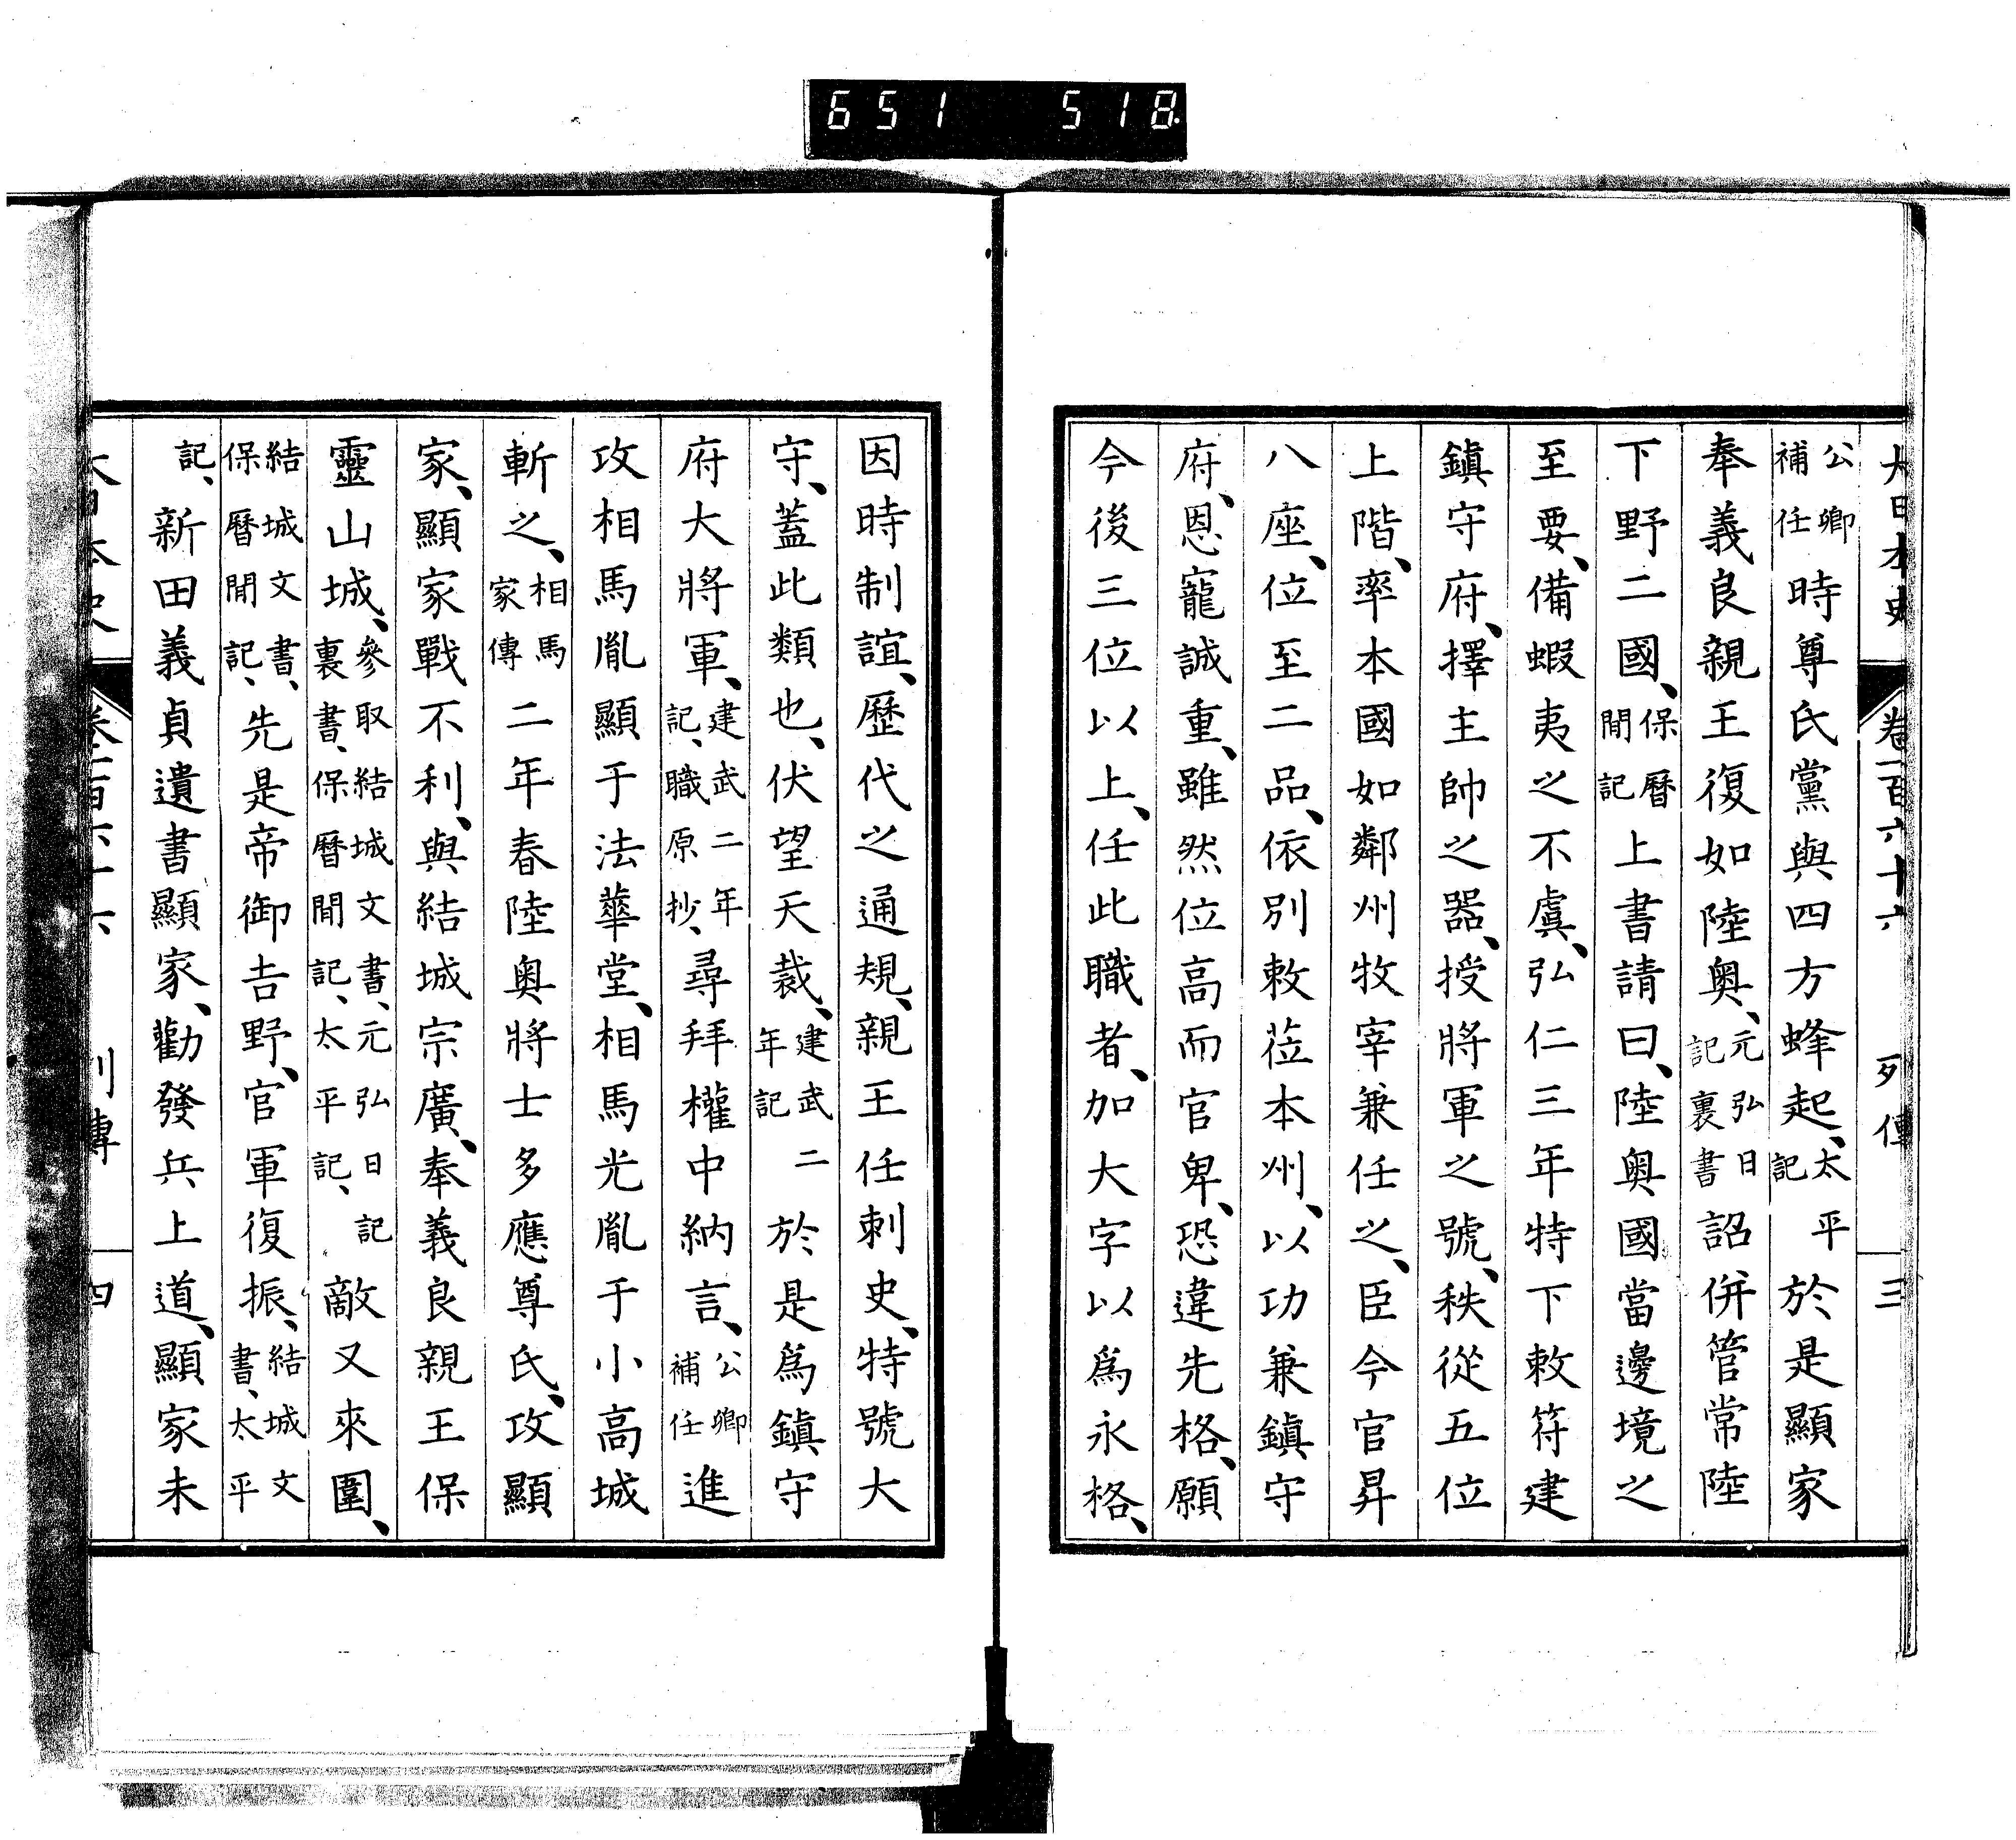 651 518
大日本史 卷一百六十六 列傳 三
公卿補任時尊氏黨與四方蜂起、太平記於是顯家
奉義良親王復如陸奥、元弘日記裏書詔併管常陸
下野二國、保曆間記上書請曰、陸奥國當邊境之
至要、備蝦夷之不虞、弘仁三年特下敕符建
鎮守府、擇主帥之器、授將軍之號、秩從五位
上階、率本國如鄰州牧宰兼任之、臣今官昇
八座、位至二品、依別敕莅本州、以功兼鎮守
府、恩寵誠重、雖然位高而官卑、恐違先格、願
今後三位以上、任此職者、加大字以爲永格、
因時制誼、歷代之通規、親王任刺史、特號大
守、蓋此類也、伏望天裁、建武二年記於是爲鎮守
府大將軍、建武二年記、職原抄、尋拜權中納言、公卿補任進
攻相馬胤顯于法華堂、相馬光胤于小高城
斬之、相馬家傳二年春陸奥將士多應尊氏、攻顯
家、顯家戰不利、與結城宗廣、奉義良親王保
靈山城、參取結城文書、元弘日記裏書、保曆間記、太平記、敵又來圍、
結城文書、保曆間記、先是帝御吉野、官軍復振、結城文書、太平
記、新田義貞遺書顯家、勸發兵上道、顯家未
大日本史 卷一百六十六 列傳 四